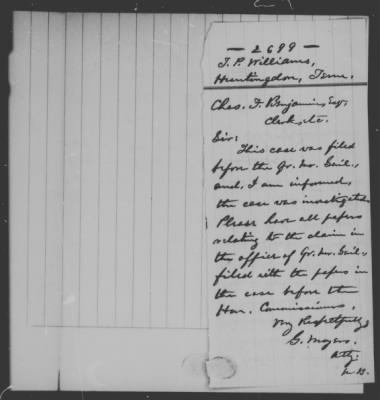 — 2699 —
T. P. Williams,
Huntingdon, Tenn.
Chas. F. Benjamin Esqr.
Clerk, etc.
Sir:
This case was filed
before the Qr. Mr. Genl.,
and, I am informed,
the case was investigated.
Please have all papers
relating to the claim in
the office of Qr. Mr. Genl.,
filed with the papers in
the case before the
Hon. Commissioners,
Very Respectfully
G. Moyers.
Atty.